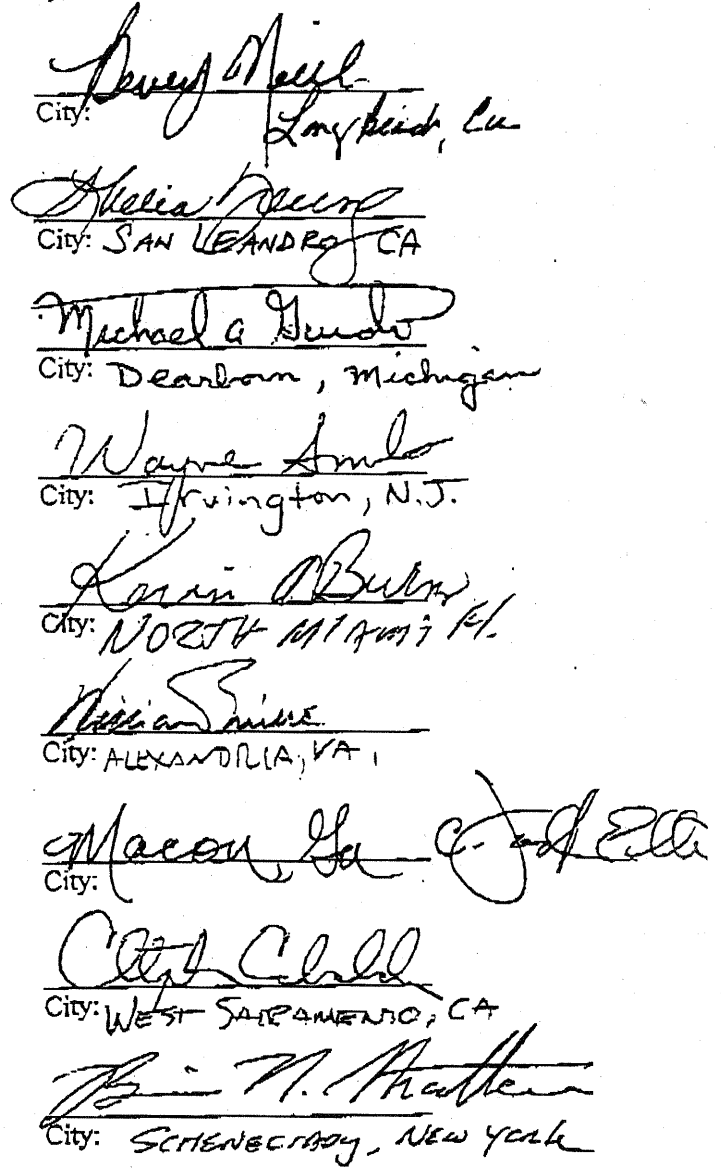 City: Long Beach, Ca
Shelia Young
City: SAN LEANDRO, CA
Michael A Guido
City: Dearborn, Michigan
Wayne Smith
City: Irvington, N.J.
Kevin A Burns
City: NORTH MIAMI Fl.
William
City: ALEXANDRIA, VA,
Macon, Ga C. Jack Ellis
City:
City: WEST SACRAMENTO, CA
N. Stratton
City: SCHENECTADY, NEW YORK